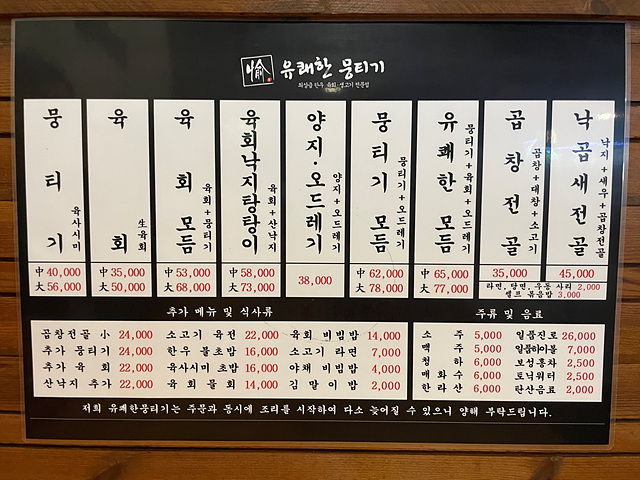 愉 유쾌한 뭉티기
최상급 한우 육회·생고기 전문점
뭉티기 육사시미
中 40,000
大 56,000
육회 생육회
中 35,000
大 50,000
육회모듬 육회+뭉티기
中 53,000
大 68,000
육회낙지탕탕이 육회+산낙지
中 58,000
大 73,000
양지·오드레기 양지+오드레기
38,000
뭉티기모듬 뭉티기+오드레기
中 62,000
大 78,000
유쾌한모듬 뭉티기+육회+오드레기
中 65,000
大 77,000
곱창전골 곱창+대창+소고기
35,000
낙곱새전골 낙지+새우+곱창전골
45,000
라면, 당면, 우동 사리 2,000
셀프 볶음밥 3,000
추가 메뉴 및 식사류
곱창전골 小 24,000 소고기 육전 22,000 육회 비빔밥 14,000
추가 뭉티기 24,000 한우 불초밥 16,000 소고기 라면 7,000
추가 육회 22,000 육사시미 초밥 16,000 야채 비빔밥 4,000
산낙지 추가 22,000 육회물회 14,000 김말이밥 2,000
주류 및 음료
소주 5,000 일품진로 26,000
맥주 5,000 일품하이볼 7,000
청하 6,000 보성홍차 2,500
매화수 6,000 토닉워터 2,500
한라산 6,000 탄산음료 2,000
저희 유쾌한뭉티기는 주문과 동시에 조리를 시작하여 다소 늦어질 수 있으니 양해 부탁드립니다.